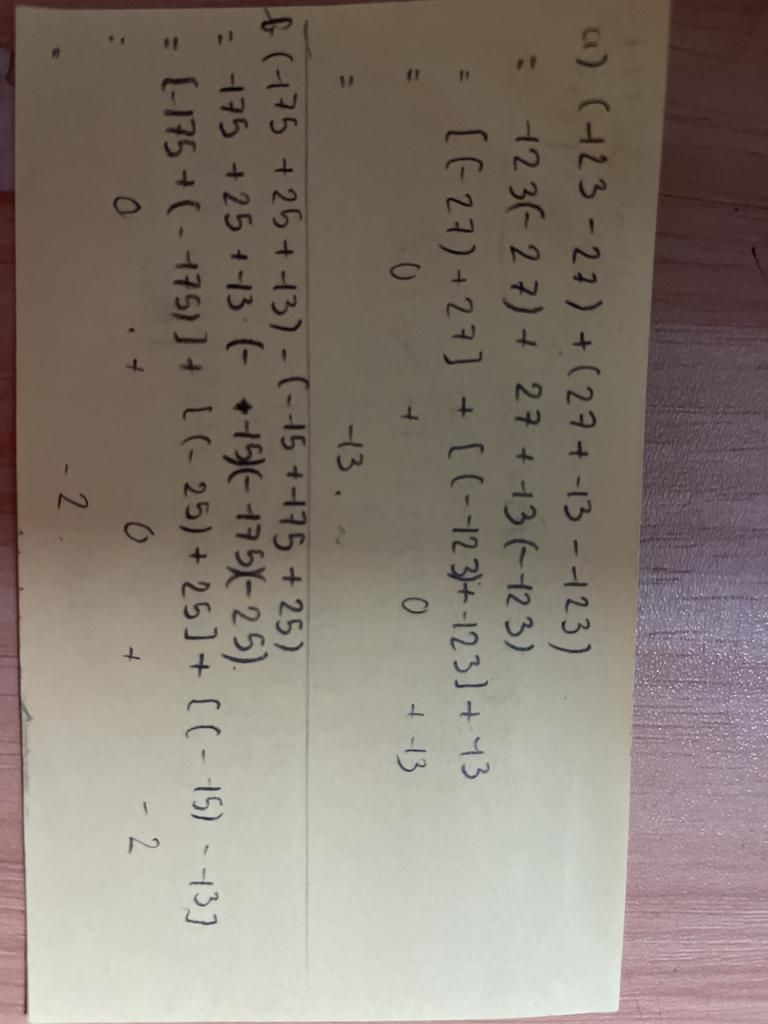 a) (-123 - 27) + (27 + -13 - -123)
= -123(-27) + 27 + -13(--123)
= [(-27) + 27] + [(--123) + -123] + -13
= 0 + 0 + -13
= -13.
b (-175 + 25 + -13) - (-15 + -175 + 25)
= -175 + 25 + -13 (- -15)(--175)(-25).
= [-175 + (--175)] + [(-25) + 25] + [(--15) - -13]
: 0 + 0 + -2
= -2